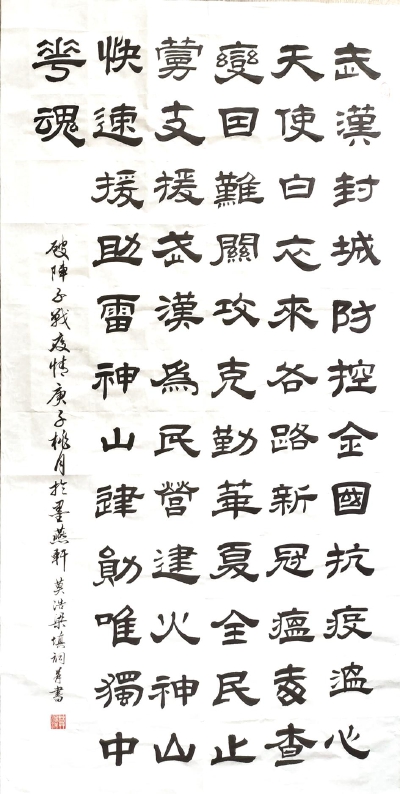 武漢封城防控全國抗疫溫心
天使白衣來各路新冠瘟毒查
變因難關攻克勤華夏全民止
支援武漢為民營建火神山
快速援助雷神山建勛唯獨中
華魂
破陣子戰疫情庚子桃月於墨燕軒莫浩填詞并書